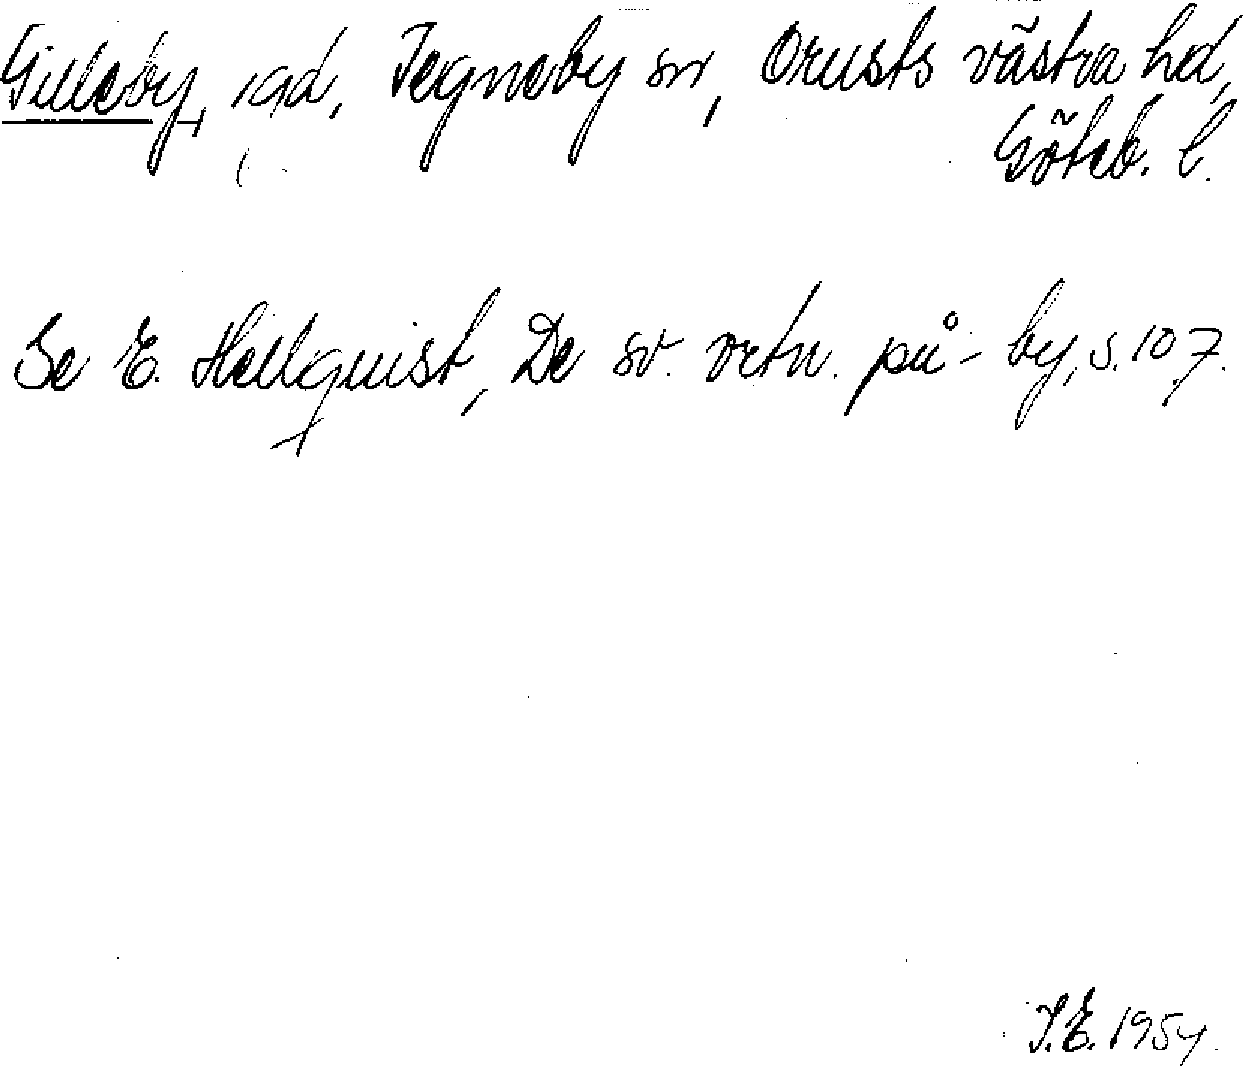 Gilleby, gd, Tegneby sn, Orusts västra hd,
Göteb. l.
Se E. Hellquist, De sv. ortn. på -by, s. 107.
I.E. 1954